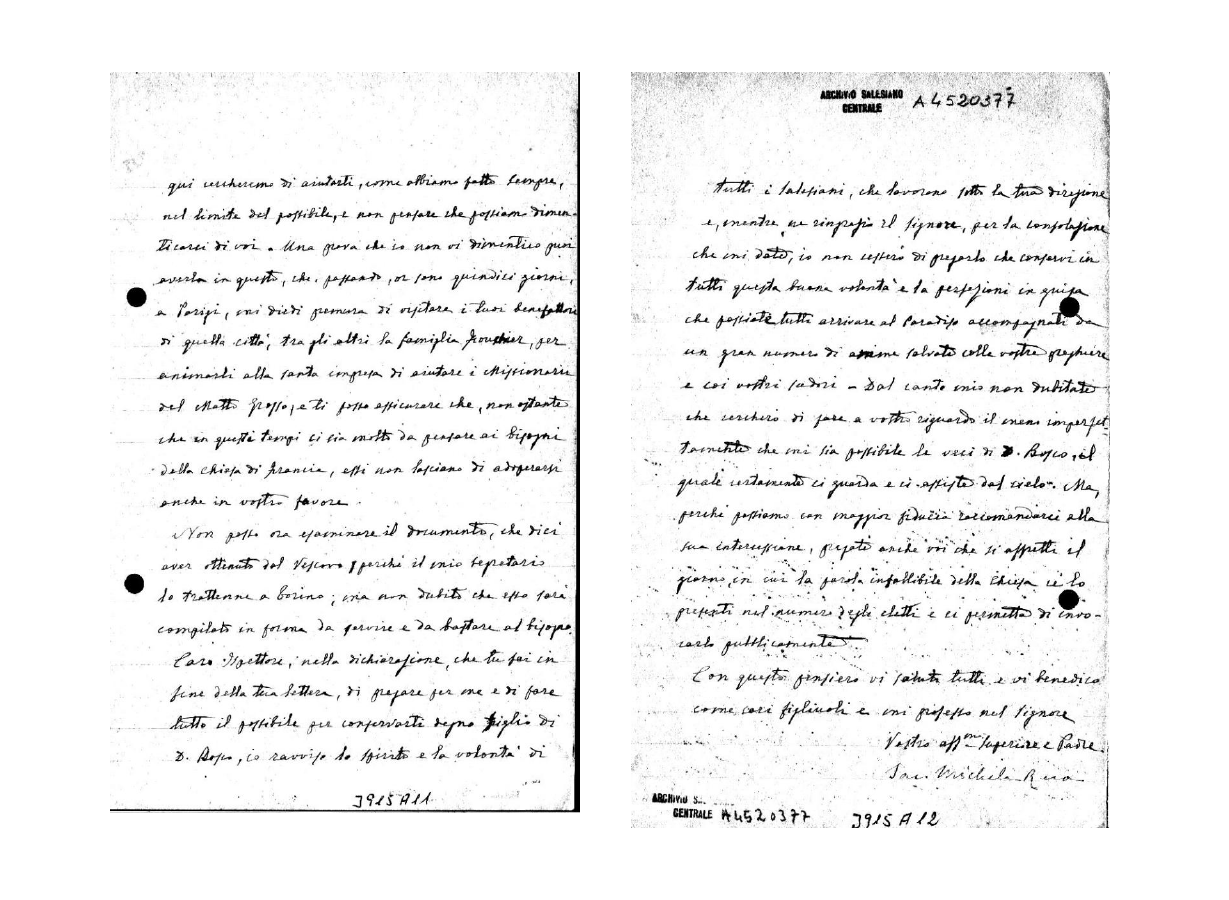 qui cercheremo di aiutarti, come abbiamo fatto sempre,
nel limite del possibile, e non pensare che possiamo dimen-
ticarci di voi. Una prova che io non vi dimentico puoi
averla in questo, che, passando, or sono quindici giorni,
a Parigi, mi diedi premura di visitare i tuoi benefattori
di quella città, tra gli altri la famiglia, per
animarli alla santa impresa di aiutare i Missionarii
del Matto Grosso, e ti posso assicurare che, non ostante
che in questi tempi ci sia molto da pensare ai bisogni
della Chiesa di Francia, essi non lasciano di adoperarsi
anche in vostro favore.
Non posso ora esaminare il documento, che dici
aver ottenuto dal Vescovo, perché il mio segretario
lo trattenne a Torino; ma non dubito che esso sarà
compilato in forma da servire e da bastare al bisogno.
Caro Ispettore, nella dichiarazione, che tu fai in
fine della tua lettera, di pregare per me e di fare
tutto il possibile per conservarti degno figlio di
D. Bosco, io ravviso lo spirito e la volontà di
J915A11
ARCHIVIO SALESIANO
CENTRALE
A4520377
tutti i Salesiani, che lavorano sotto la tua direzione
e, mentre ne ringrazio il Signore, per la consolazione
che mi date, io non cesserò di pregarlo che conservi in
tutti questa buona volontà e la perfezioni in guisa
che possiate tutti arrivare al Paradiso accompagnati da
un gran numero di anime salvate colle vostre preghiere
e coi vostri sudori – Dal canto mio non dubitate
che cercherò di fare a vostro riguardo il meno imperfet-
tamente che mi sia possibile le veci di D. Bosco, il
quale certamente ci guarda e ci assiste dal cielo. Ma,
perché possiamo con maggior fiducia raccomandarci alla
sua intercessione, pregate anche voi che si affretti il
giorno, in cui la parola infallibile della Chiesa ce lo
presenti nel numero degli eletti e ci permetta di invo-
carlo pubblicamente.
Con questo pensiero vi saluto tutti e vi benedico
come cari figliuoli e mi professo nel Signore
Vostro aff.mo Superiore e Padre
Sac. Michele Rua
ARCHIVIO S...
CENTRALE A4520377
J915A12